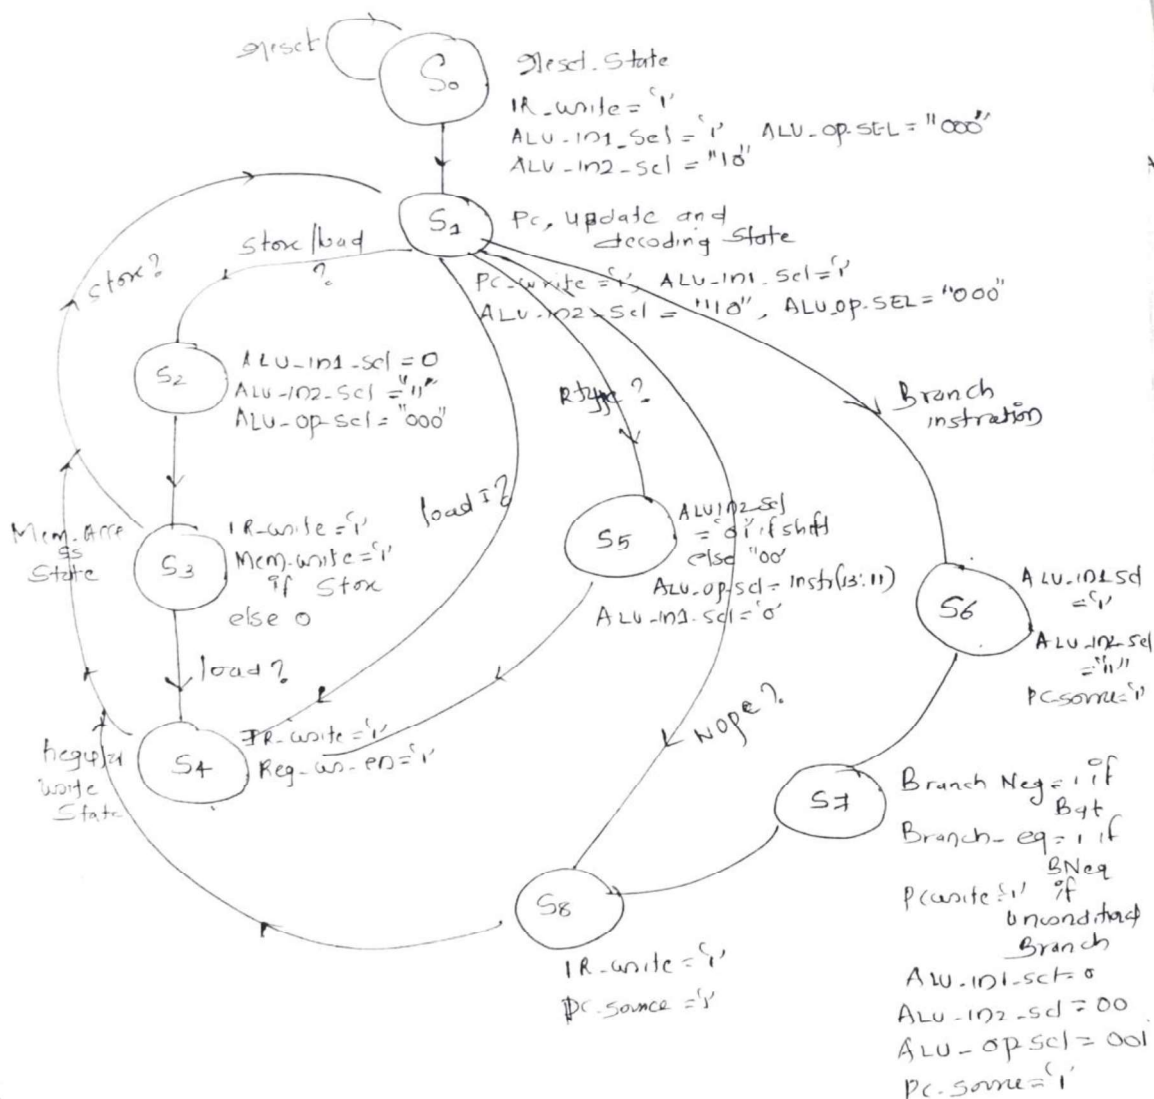 reset
S0
reset. State
IR_write = '1'
ALU-in1_Sel = '1' ALU-op.SEL = "000"
ALU-in2-Sel = "10"
S1
Pc, update and
decoding State
Store/load
?
store?
Pc-write = '1', ALU-in1.Sel='1'
ALU-in2-Sel = "10", ALU.op.SEL = "000"
S2
ALU-in1-Sel = 0
ALU-in2-Sel = "11"
ALU-op-Sel = "000"
Rtype?
Branch
load I?
Mem.Acce
ss
State
S3
IR-write = '1'
Mem-write = '1'
if Store
else 0
load?
S5
ALUin2-Sel
= '01' if shift
else "00'
ALU.op.Sel = instr(13:11)
ALU-in1.Sel='0'
S6
ALU-in1 Sel
= '1'
ALU-in2-Sel
= "11"
PC-source='1'
Nope?
write
State
S4
IR-write = '1'
Reg-wr-en='1'
S7
Branch Neg = 1 if
Bgt
Branch-eq = 1 if
BNeq
PCwrite='1' if
Branch
ALU-in1-sel = 0
ALU-in2-sel = 00
ALU-op sel = 001
Pc-source='1'
S8
IR-write = '1'
PC-source = '1'